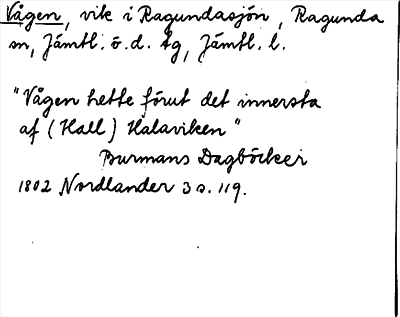 Vågen, vik i Ragundasjön, Ragunda
sn, Jämtl. ö. d. tg, Jämtl. l.
"Vågen hette förut det innersta
af (Hall) Halaviken"
Burmans Dagböcker
1802 Nordlander 3 s. 119.